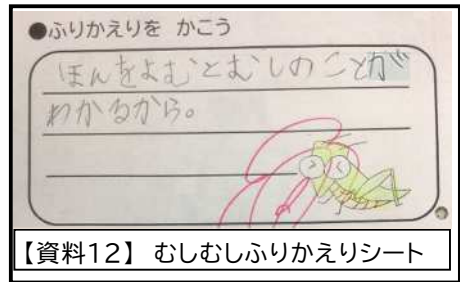 ●ふりかえりを かこう
ほんをよむとむしのことが
わかるから。
【資料12】 むしむしふりかえりシート